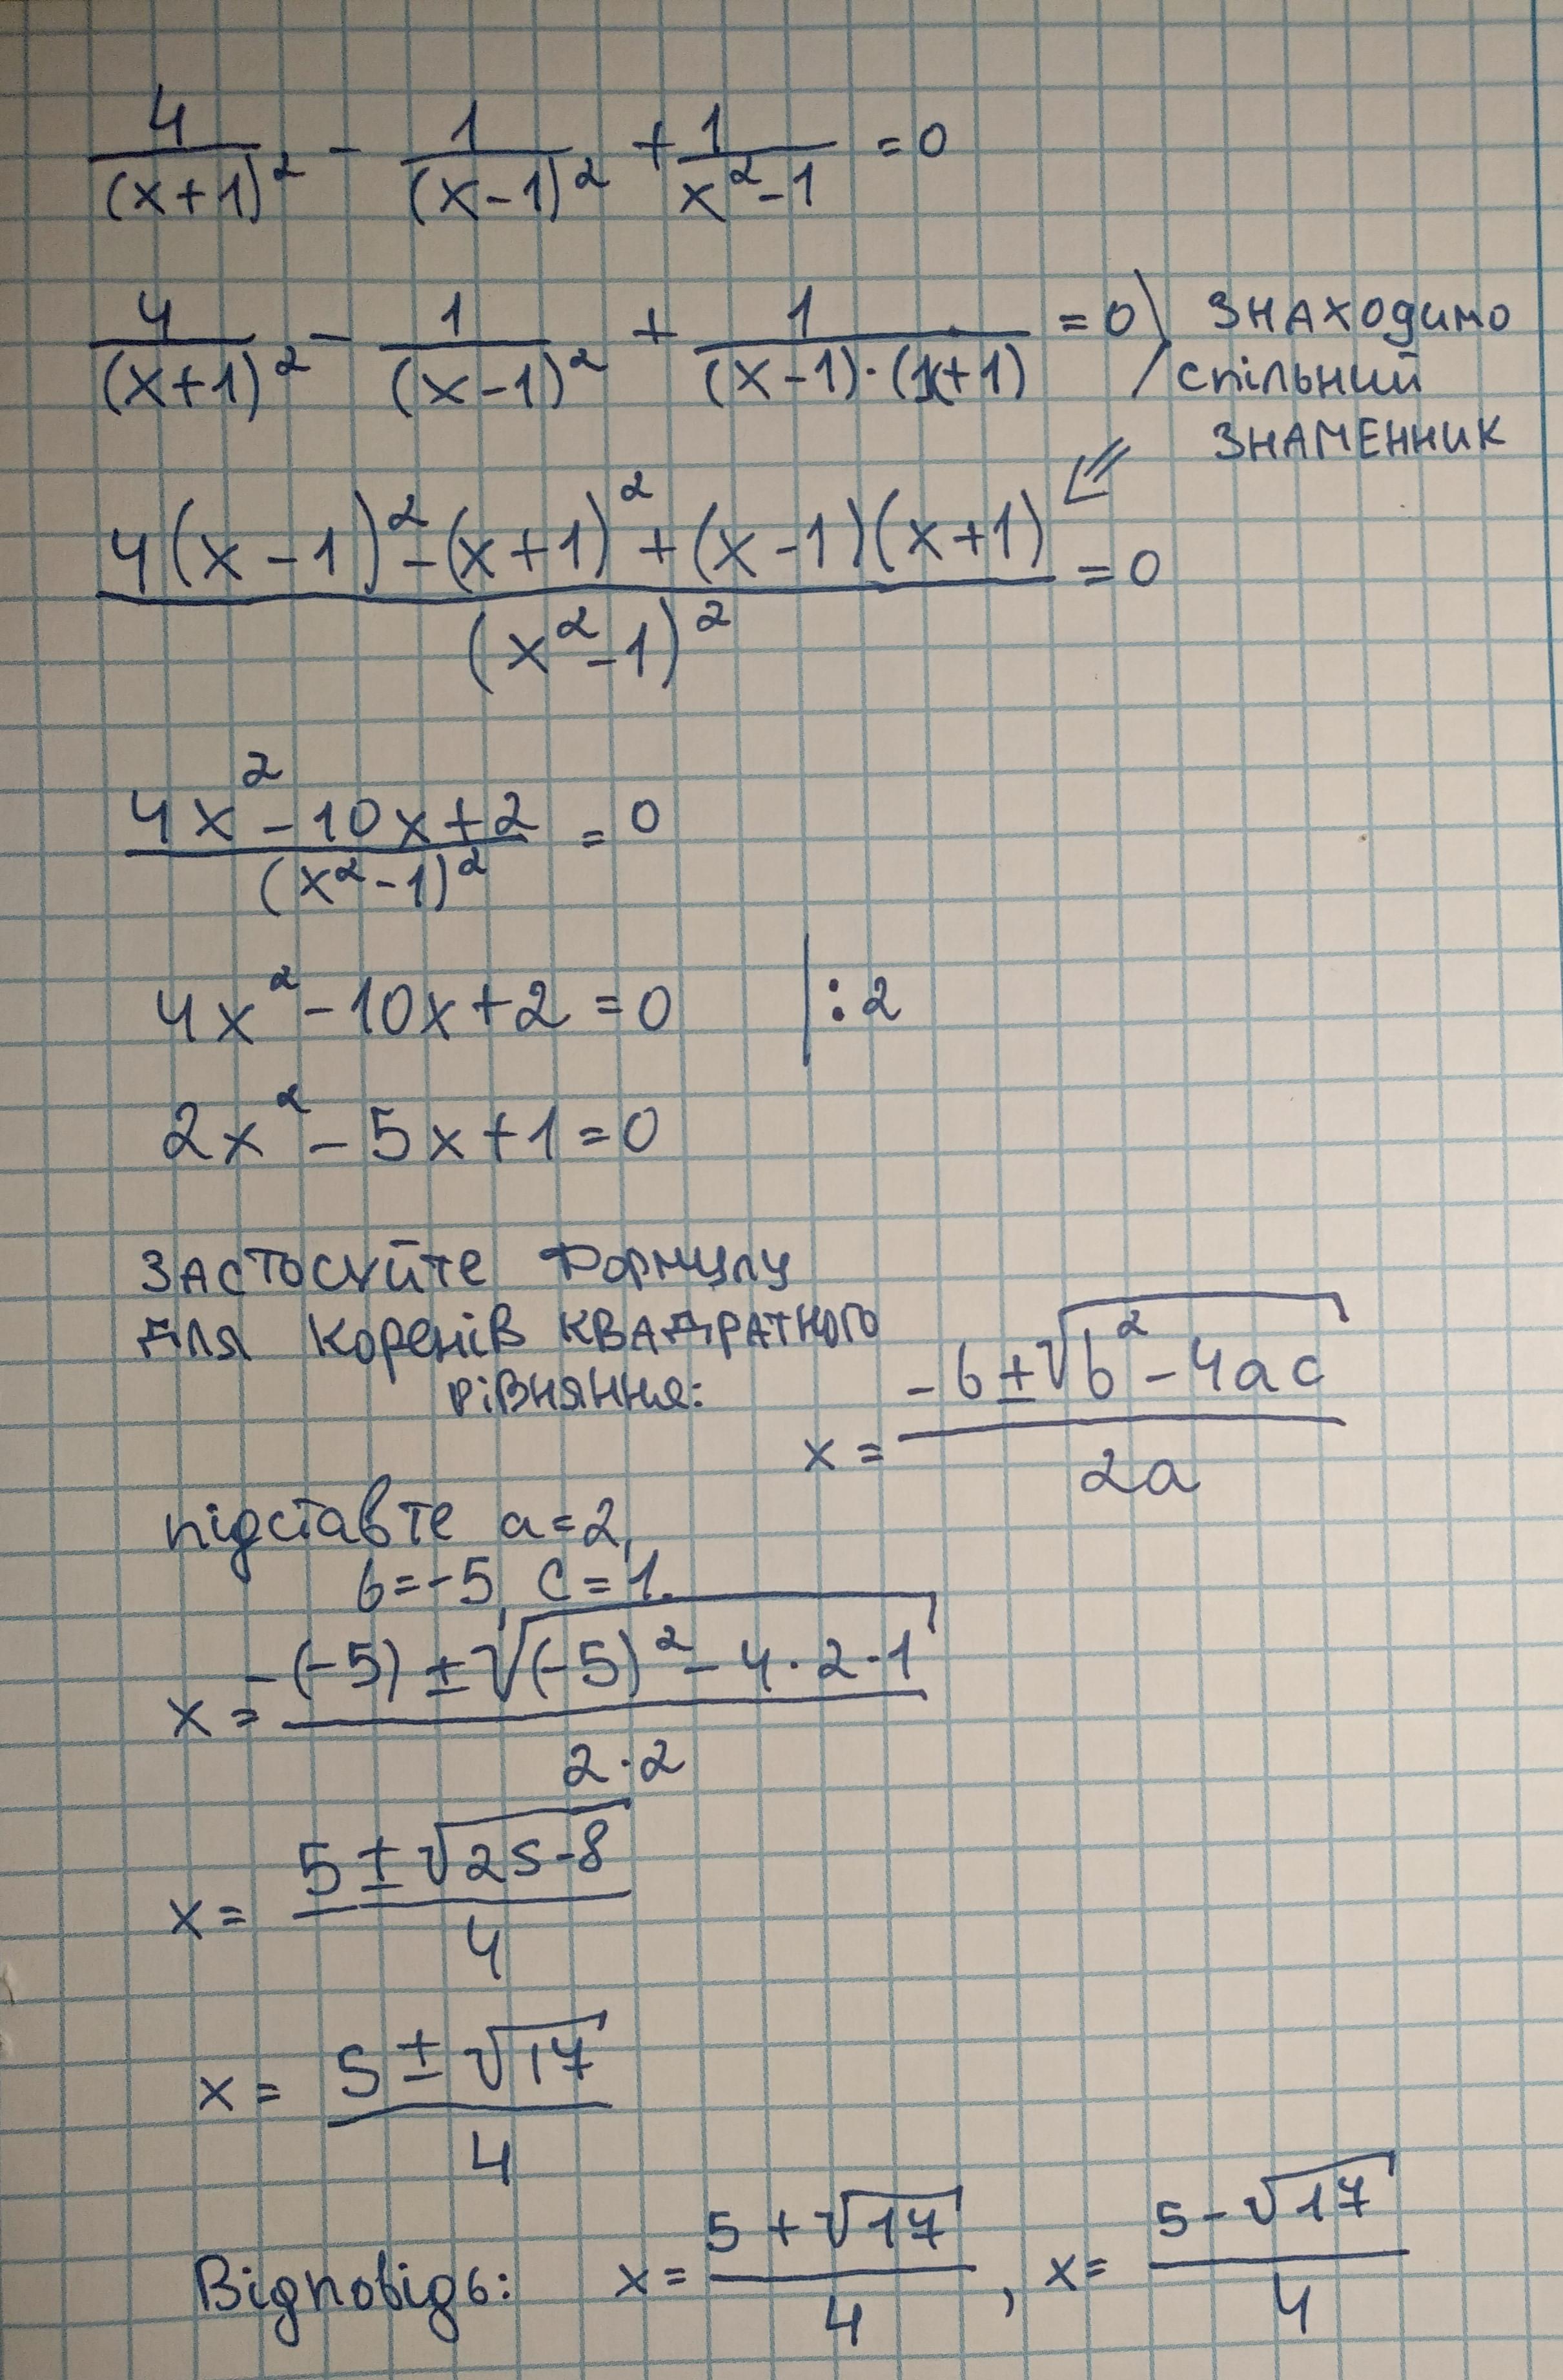 4/(x+1)² - 1/(x-1)² + 1/(x²-1) = 0
4/(x+1)² - 1/(x-1)² + 1/((x-1)·(x+1)) = 0 знаходимо
спільний
знаменник
(4(x-1)² - (x+1)² + (x-1)(x+1))/(x²-1)² = 0
(4x² - 10x + 2)/(x²-1)² = 0
4x² - 10x + 2 = 0 | : 2
2x² - 5x + 1 = 0
Застосуйте формулу
для коренів квадратного
рівняння:
x = (-b ± √(b² - 4ac))/(2a)
підставте a = 2,
b = -5, c = 1.
x = (-(-5) ± √((-5)² - 4·2·1))/(2·2)
x = (5 ± √(25-8))/4
x = (5 ± √17)/4
Відповідь: x = (5 + √17)/4, x = (5 - √17)/4